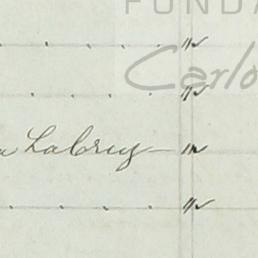 FUNDA
Carlo
. . . . "
. . . . "
a Labruy — "
. . . . "